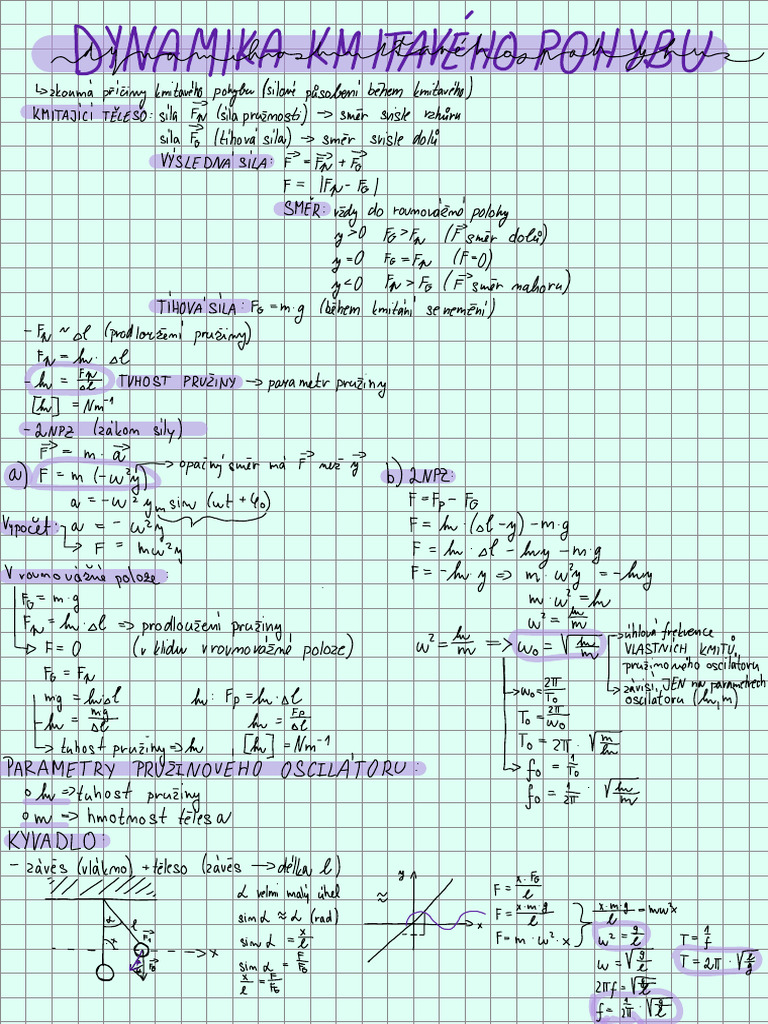 DYNAMIKA KMITAVÉHO POHYBU
↳ zkoumá příčiny kmitavého pohybu (silové působení během kmitavého)
KMITAJÍCÍ TĚLESO: síla F⃗ₚ (síla pružnosti) → směr svisle vzhůru
síla F⃗_G (tíhová síla) → směr svisle dolů
VÝSLEDNÁ SÍLA: F⃗ = F⃗ₚ + F⃗_G
F = |Fₚ - F_G|
SMĚR: vždy do rovnovážné polohy
y>0 F_G > Fₚ (F⃗ směr dolů)
y=0 F_G = Fₚ (F=0)
y<0 Fₚ > F_G (F⃗ směr nahoru)
TÍHOVÁ SÍLA: F_G = m·g (během kmitání se nemění)
- Fₚ ~ Δl (prodloužení pružiny)
Fₚ = k · Δl
- k = Fₚ/Δl TUHOST PRUŽINY → parametr pružiny
[k] = Nm⁻¹
- 2NPZ (zákon síly)
F⃗ = m · a⃗
a) F = m (-ω²y) → opačný směr má F⃗ než y⃗
a = -ω² yₘ sin (ωt + φ₀)
Výpočet: a = - ω²y
→ F = mω²y
V rovnovážné poloze:
F_G = m·g
Fₚ = k·Δl => prodloužení pružiny
→ F = 0 (v klidu v rovnovážné poloze)
F_G = Fₚ
mg = kΔl k: Fp = k·Δl
k = mg/Δl k = Fp/Δl
→ tuhost pružiny => k [k] = Nm⁻¹
b) 2NPZ:
F = Fp - F_G
F = k · (Δl - y) - m·g
F = k · Δl - ky - m·g
F = -k·y => m·ω²y = -ky
m·ω² = k
ω² = k/m
ω² = k/m => ω₀ = √(k/m)
→ úhlová frekvence
VLASTNÍCH KMITŮ
pružinového oscilátoru
→ závisí JEN na parametrech
oscilátoru (k, m)
→ ω₀ = 2π/T₀
T₀ = 2π/ω₀
T₀ = 2π · √(m/k)
→ f₀ = 1/T₀
f₀ = 1/2π · √(k/m)
PARAMETRY PRUŽINOVÉHO OSCILÁTORU:
o k => tuhost pružiny
o m => hmotnost tělesa
KYVADLO:
- závěs (vlákno) + těleso (závěs → délka l)
α
l
x
x
α velmi malý úhel
sin α ≈ α (rad)
sin α = x/l
sin α = F/F_G
x/l = F/F_G
≈
y
x
F = x·F_G/l
F = x·m·g/l
F = m·ω²·x
x·m·g/l = mω²x
ω² = g/l
ω = √(g/l)
2πf = √(g/l)
f = 1/2π · √(g/l)
T = 1/f
T = 2π · √(l/g)